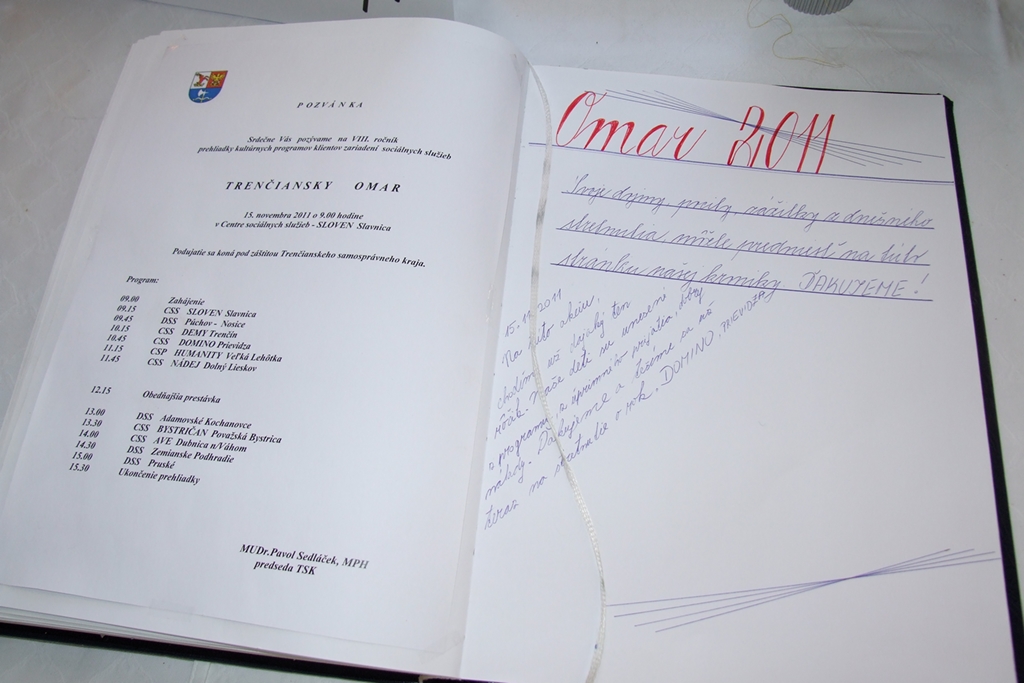 POZVÁNKA
Srdečne Vás pozývame na VIII. ročník
prehliadky kultúrnych programov klientov zariadení sociálnych služieb
TRENČIANSKY OMAR
15. novembra 2011 o 9.00 hodine
v Centre sociálnych služieb - SLOVEN Slavnica
Podujatie sa koná pod záštitou Trenčianskeho samosprávneho kraja.
Program:
09.00 Zahájenie
09.15 CSS SLOVEN Slavnica
09.45 DSS Púchov - Nosice
10.15 CSS DEMY Trenčín
10.45 CSS DOMINO Prievidza
11.15 CSP HUMANITY Veľká Lehôtka
11.45 CSS NÁDEJ Dolný Lieskov
12.15 Obedňajšia prestávka
13.00 DSS Adamovské Kochanovce
13.30 CSS BYSTRIČAN Považská Bystrica
14.00 CSS AVE Dubnica n/Váhom
14.30 DSS Zemianske Podhradie
15.00 DSS Pruské
15.30 Ukončenie prehliadky
MUDr.Pavol Sedláček, MPH
predseda TSK
Omar 2011
Svoje dojmy, pocity, zážitky z dnešného
stretnutia môžete predniesť na túto
stránku našej kroniky ĎAKUJEME!
15.11.2011
Na túto akciu,
chodíme už dajaký ten
rôčik. Naše deti sú unesené
z programu, z úprimného prijatia, dobrej
nálady. Ďakujeme a tešíme sa už
teraz na stretnutie o rok. DOMINO. PRIEVIDZA